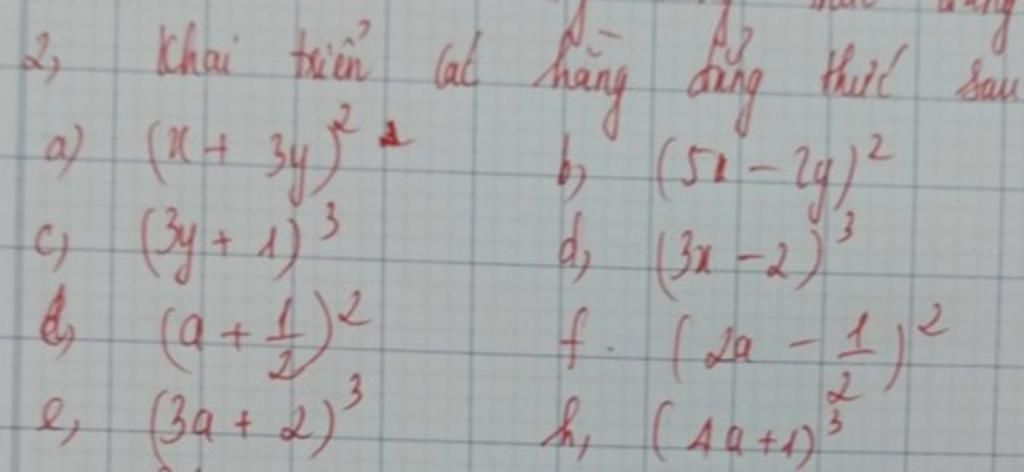 2, Khai triển các hằng đẳng thức sau
a) (x + 3y)²
b, (5x - 2y)²
c, (3y + 1)³
d, (3x - 2)³
đ, (a + 1/2)²
f. (2a - 1/2)²
e, (3a + 2)³
h, (4a + 1)³